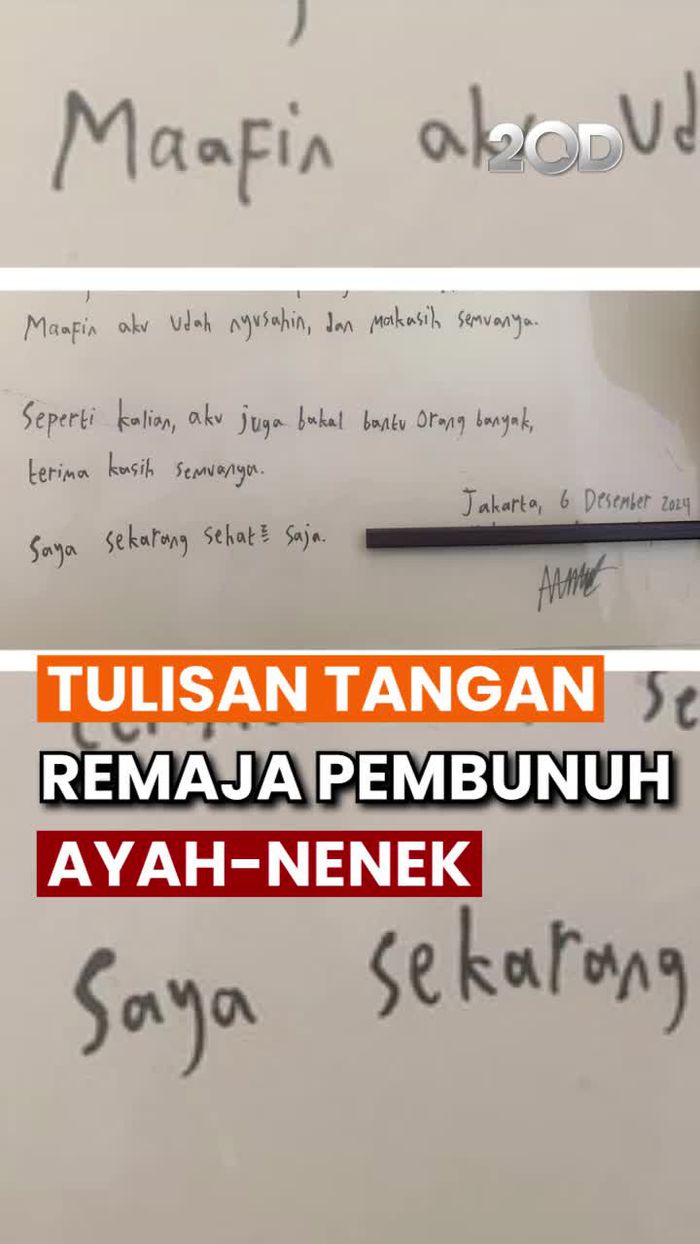 Maafin aku Ud
20D
Maafin aku udah nyusahin, dan makasih semuanya.
Seperti kalian, aku juga bakal bantu orang banyak,
terima kasih semuanya.
Jakarta, 6 Desember 2024
Saya sekarang sehat² saja.
TULISAN TANGAN
Se
REMAJA PEMBUNUH
AYAH-NENEK
Saya sekarang